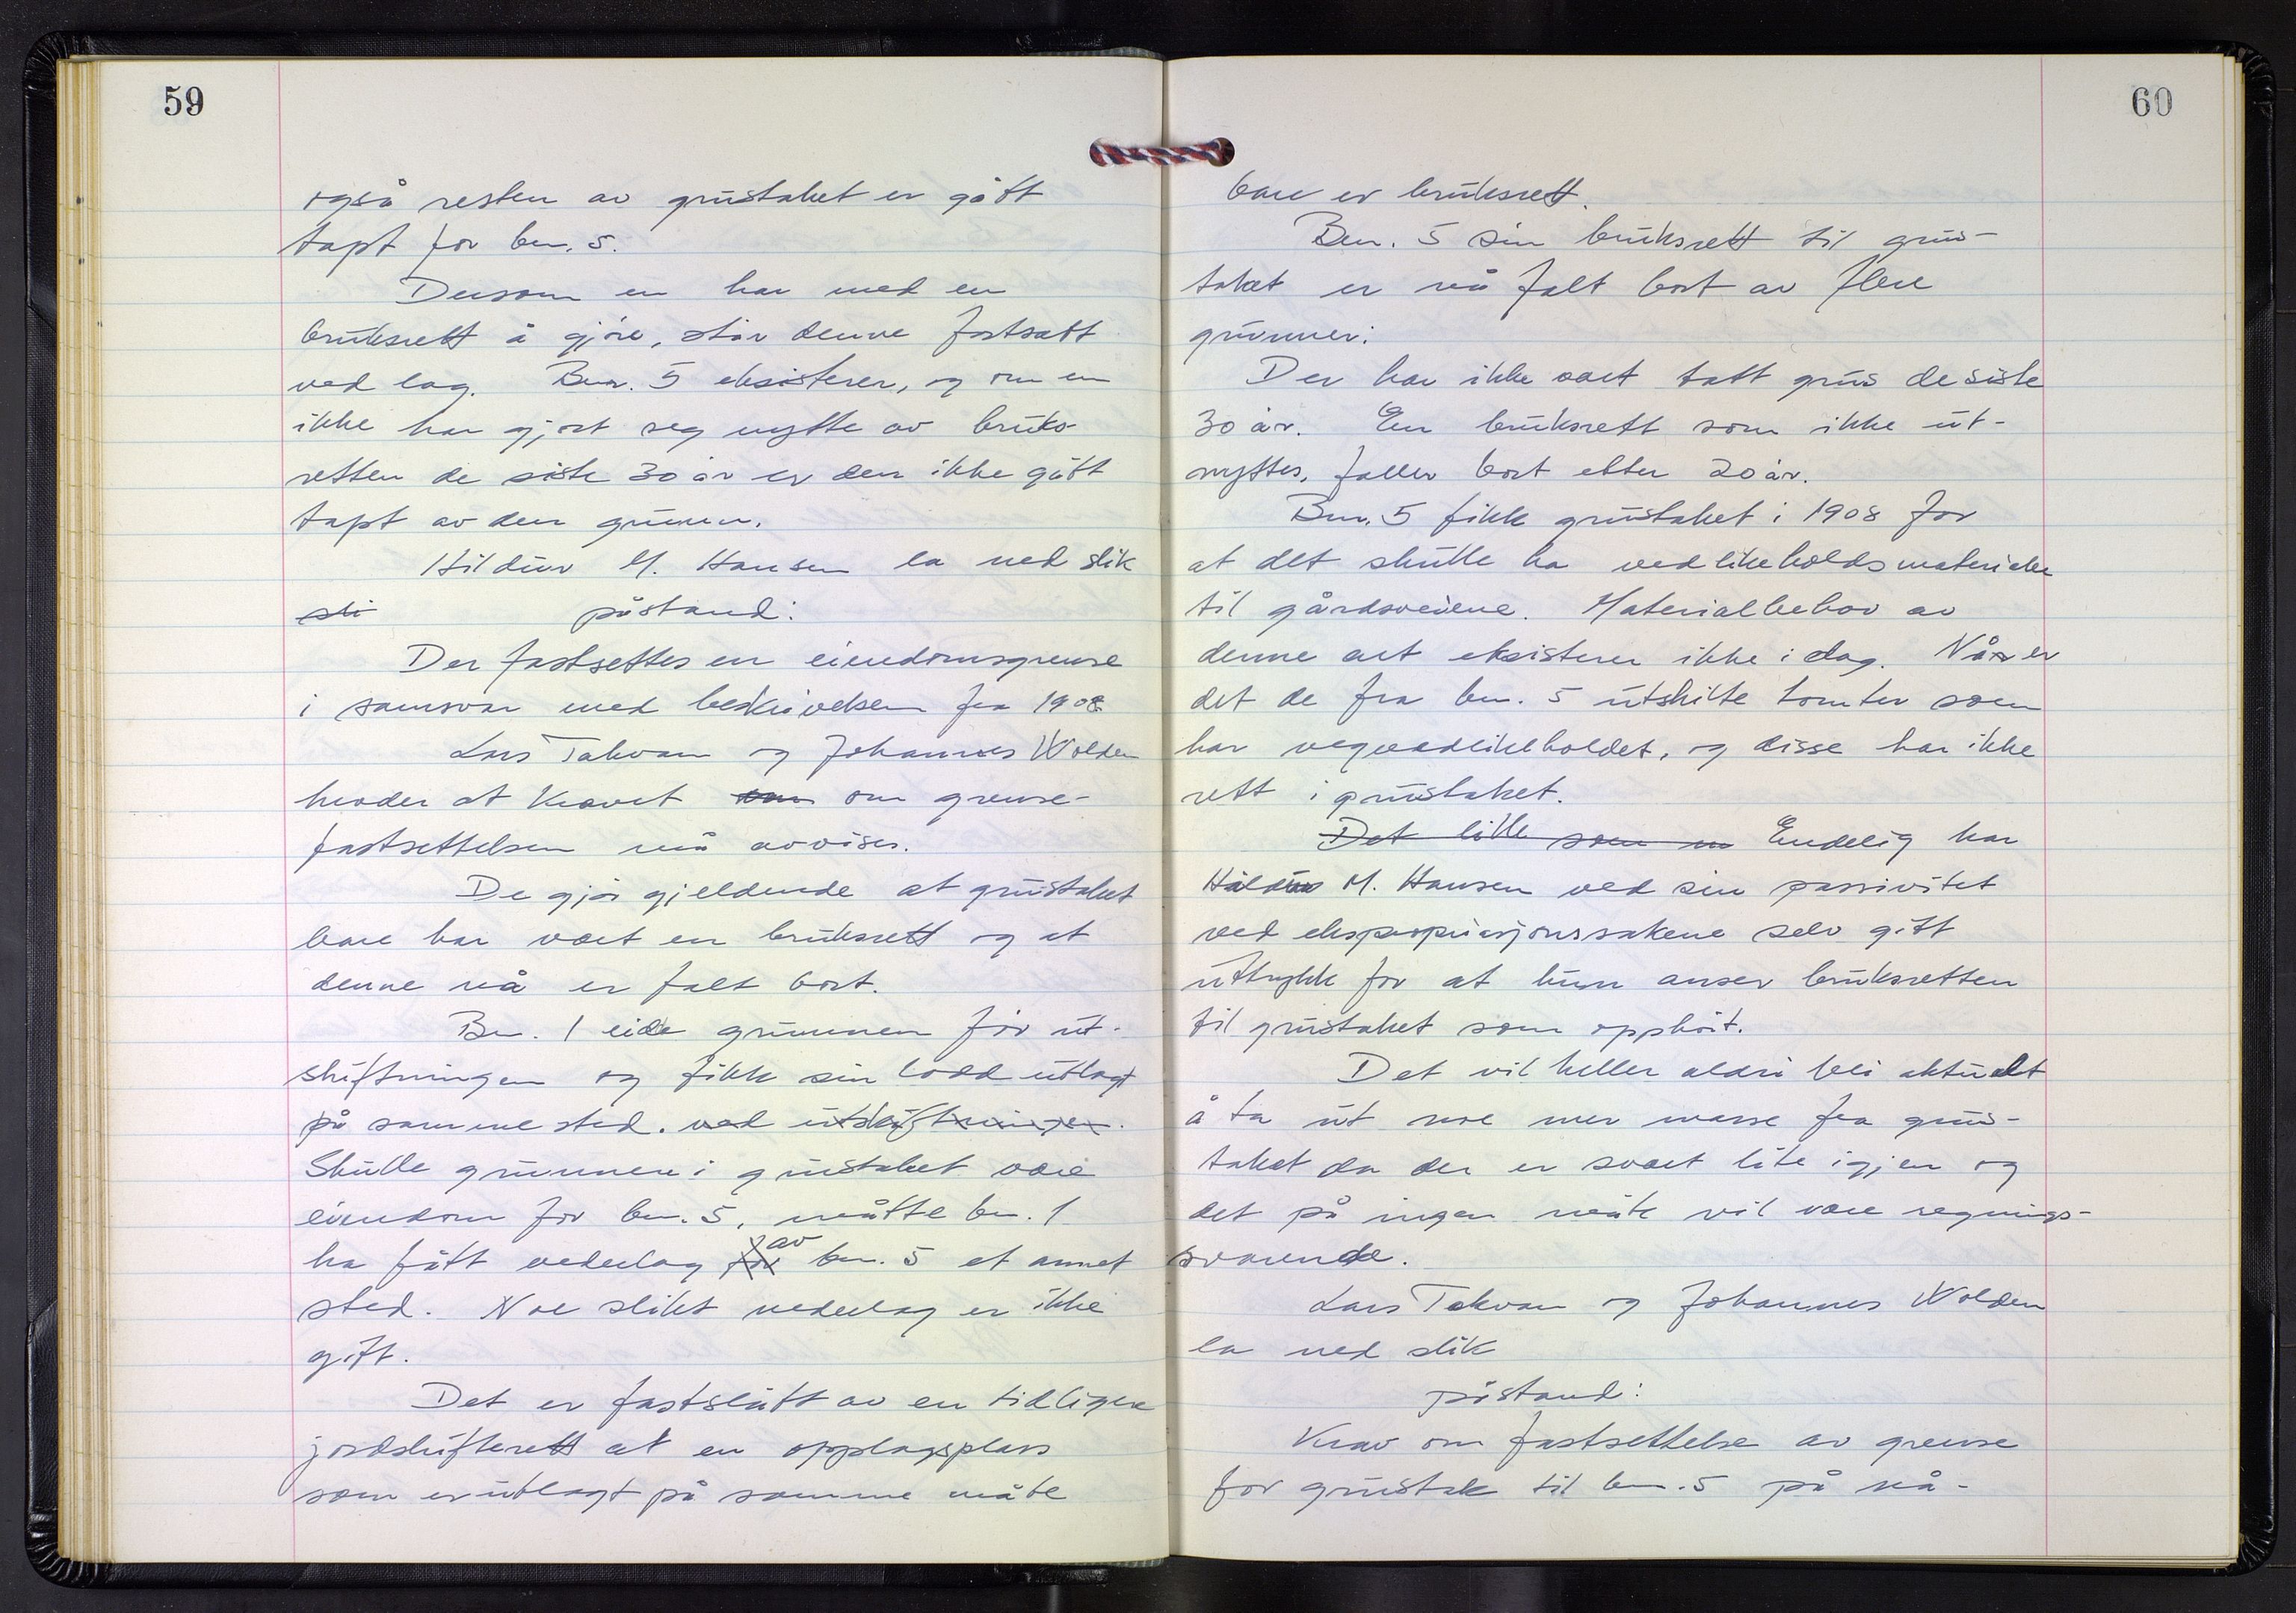 59
også resten av grustaket er gått
tapt for bnr. 5.
Dersom en har med en
bruksrett å gjøre, står denne fortsatt
ved lag. Bnr. 5 eksisterer, og om en
ikke har gjort seg nytte av bruks-
retten de siste 30 år er den ikke gått
tapt av den grunn.
Hildur M. Hansen la ned slik
sli påstand:
Der fastsettes en eiendomsgrense
i samsvar med beskrivelsen fra 1908
Lars Takvam og Johannes Wolden
hevder at kravet om grense-
fastsettelsen må avvises.
De gjør gjeldende at grustaket
bare har vært en bruksrett og at
denne nå er falt bort.
Bnr. 1 eide grunnen før ut-
skiftningen og fikk sin lodd utlagt
på samme sted. ved utskiftningen.
Skulle grunnen i grustaket være
eiendom for bnr. 5, måtte bnr. 1
ha fått vederlag for av bnr. 5 et annet
sted. Noe slikt vederlag er ikke
gitt.
Det er fastslått av en tidligere
jordskifterett at en opplagsplass
som er utlagt på samme måte
60
bare er bruksrett.
Bnr. 5 sin bruksrett til grus-
taket er nå falt bort av flere
grunner:
Der har ikke vært tatt grus de siste
30 år. En bruksrett som ikke ut-
nyttes, faller bort etter 20 år.
Bnr. 5 fikk grustaket i 1908 for
at det skulle ha vedlikeholdsmateriale
til gårdsveiene. Materialbehov av
denne art eksisterer ikke i dag. Nå er
det de fra bnr. 5 utskilte tomter som
har vegvedlikeholdet, og disse har ikke
rett i grustaket.
Det lille som Endelig har
Hildur M. Hansen ved sin passivitet
ved ekspropriasjonssakene selv gitt
uttrykk for at hun anser bruksretten
til grustaket som opphørt.
Det vil heller aldri bli aktuelt
å ta ut noe mer masse fra grus-
taket da der er svært lite igjen og
det på ingen måte vil være regnings-
svarende.
Lars Takvam og Johannes Wolden
la ned slik
påstand:
Krav om fastsettelse av grense
for grustak til bnr. 5 på nå-